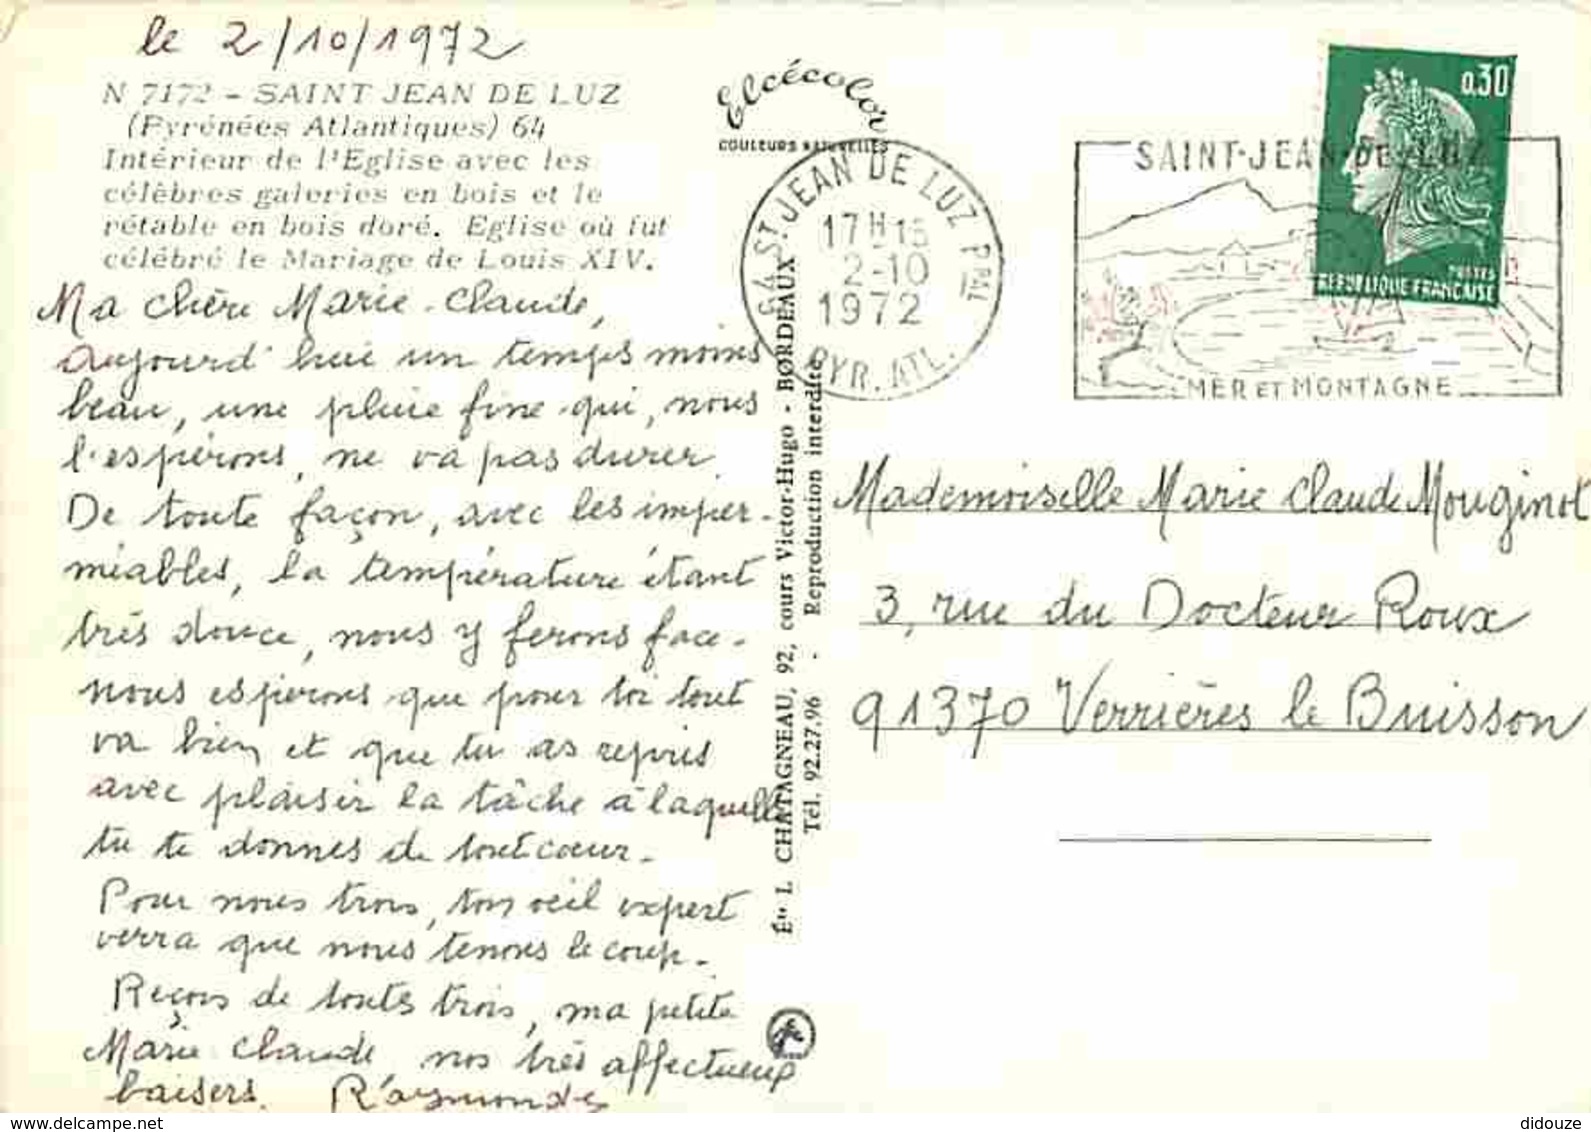 le 2/10/1972
N 7172 - SAINT JEAN DE LUZ
(Pyrénées Atlantiques) 64
Intérieur de l'Eglise avec les
célèbres galeries en bois et le
rétable en bois doré. Eglise où fut
célébré le Mariage de Louis XIV.
Ma chère Marie-Claude,
aujourd'hui un temps moins
beau, une pluie fine qui, nous
l'espérons, ne va pas durer
De toute façon, avec les imper-
méables, la température étant
très douce, nous y ferons face.
nous espérons que pour toi tout
va bien et que tu as repris
avec plaisir la tâche à laquelle
tu te donnes de tout coeur.
Pour nous trois, ton oeil expert
verra que nous tenons le coup.
Reçois de toutes trois, ma petite
Marie Claude, nos très affectueux
baisers. Raymonde
Elcécolor
COULEURS NATURELLES
64 ST JEAN DE LUZ PPAL
17H-15
2-10
1972
PYR. ATL.
Éts L CHATAGNEAU, 92, cours Victor-Hugo - BORDEAUX
Tél. 92.27.96 - Reproduction interdite
0,30
POSTES
REPUBLIQUE FRANÇAISE
SAINT-JEAN-DE-LUZ
MER ET MONTAGNE
Mademoiselle Marie Claude Mouginot
3, rue du Docteur Roux
91370 Verrières le Buisson
www.delcampe.net
didouze